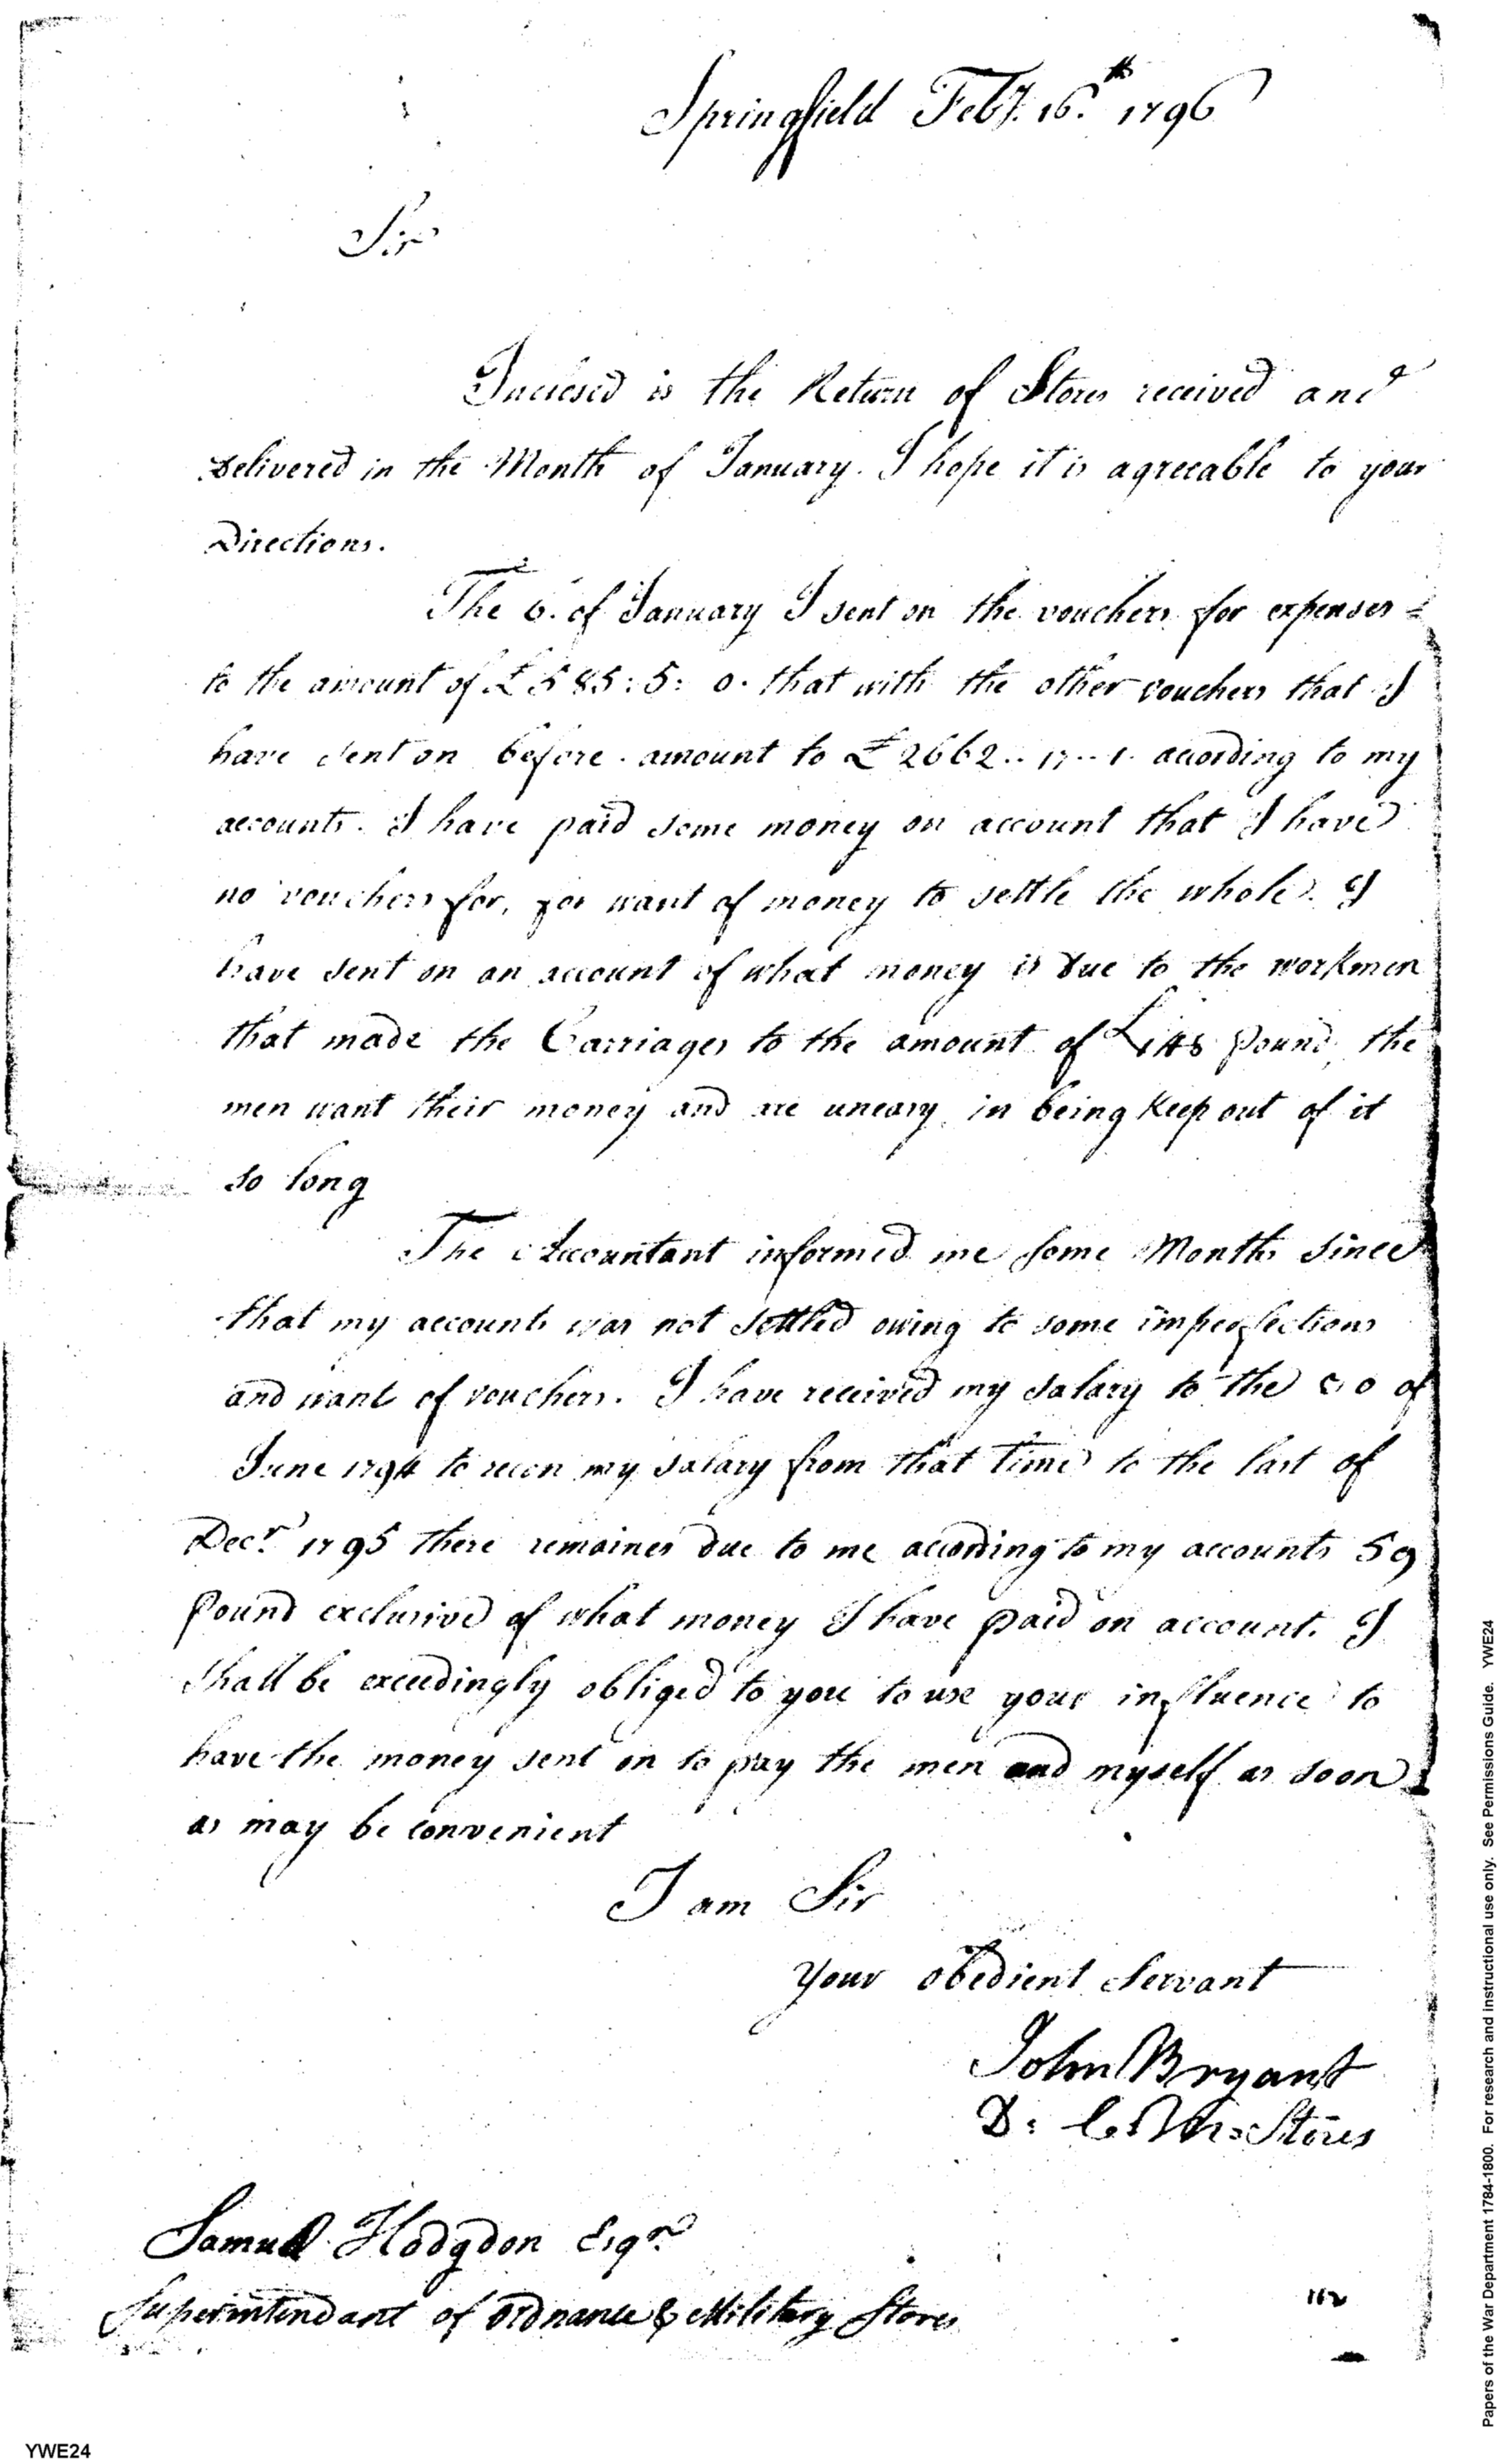 Springfield Feby. 16.th 1796
Sir
Inclosed is the Return of Stores received and
Delivered in the Month of January. I hope it is agreeable to your
Directions.
The 6. of January I sent on the vouchers for expenses
to the amount of £585:5:0. that with the other vouchers that I
have sent on before. amount to £2662..17..1. acording to my
accounts. I have paid some money on account that I have
no vouchers for, for want of money to settle the whole. I
have sent on an account of what money is due to the workmen
that made the Carriages to the amount of £148 Pound, the
men want their money and are uneasy in being Keep out of it
so long
The Accountant informed me some Months since
that my accounts was not settled owing to some imperfections
and want of vouchers. I have received my salary to the 30 of
June 1794 to recon my salary from that time to the last of
Decr. 1795 there remaines due to me acording to my accounts 59
Pound exclusive of what money I have paid on account. I
shall be exceedingly obliged to you to use your influence to
have the money sent on to pay the men and myself as soon
as may be convenient
I am Sir
Your obedient Servant
John Bryant
D: C. M: Stores
Samuel Hodgdon Esqr.
Superintendant of Ordnance & Military Stores
112
Papers of the War Department 1784-1800. For research and instructional use only. See Permissions Guide. YWE24
YWE24